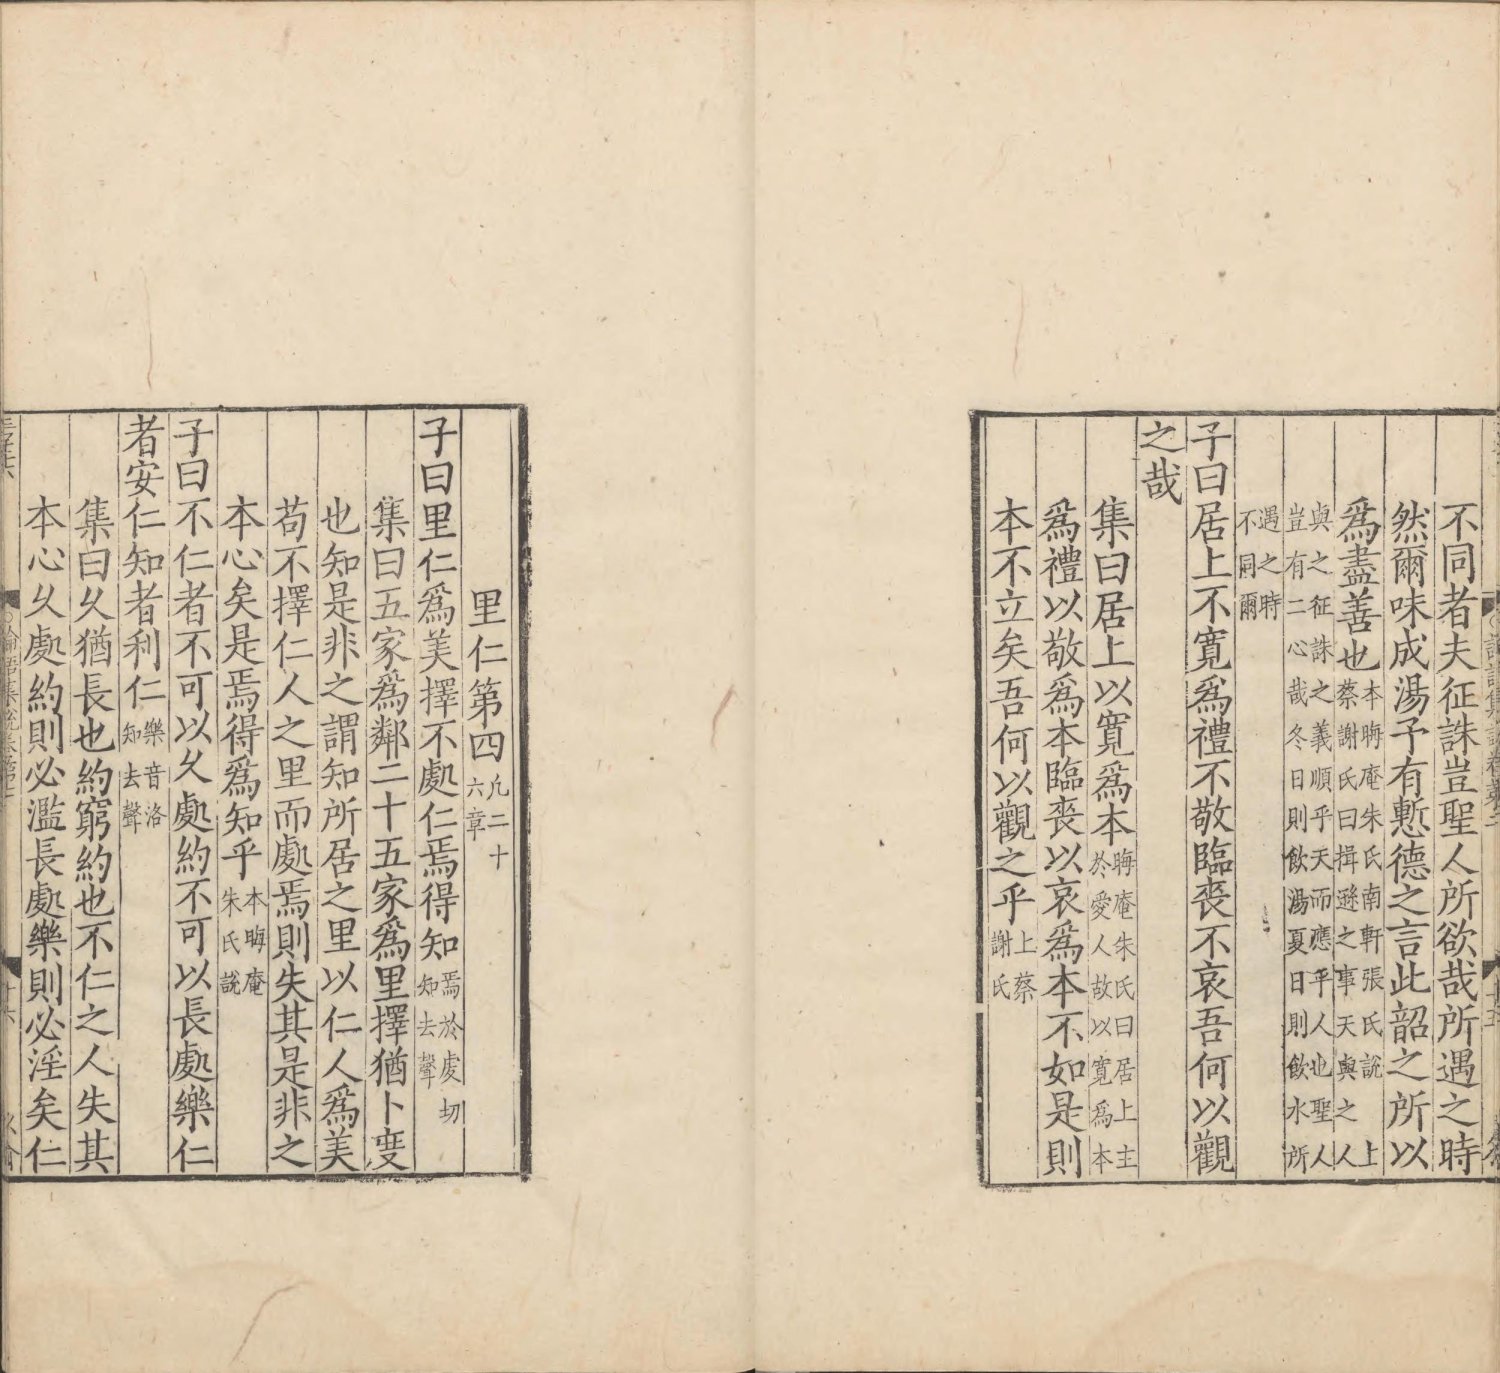 不同者夫征誅豈聖人所欲哉所遇之時
然爾味成湯予有慙德之言此韶之所以
爲盡善也本晦庵朱氏南軒張氏說 上
蔡謝氏曰揖遜之事天與之人
與之征誅之義順乎天而應乎人也聖人
豈有二心哉冬日則飲湯夏日則飲水所
遇之時
不同爾
子曰居上不寛爲禮不敬臨喪不哀吾何以觀
之哉
集曰居上以寛爲本晦庵朱氏曰居上主
於愛人故以寛爲本
爲禮以敬爲本臨喪以哀爲本不如是則
本不立矣吾何以觀之乎上蔡
謝氏
里仁第四凡二十
六章
子曰里仁爲美擇不處仁焉得知焉於虔切
知去聲
集曰五家爲鄰二十五家爲里擇猶卜度
也知是非之謂知所居之里以仁人爲美
苟不擇仁人之里而處焉則失其是非之
本心矣是焉得爲知乎本晦庵
朱氏說
子曰不仁者不可以久處約不可以長處樂仁
者安仁知者利仁樂音洛
知去聲
集曰久猶長也約窮約也不仁之人失其
本心久處約則必濫長處樂則必淫矣仁